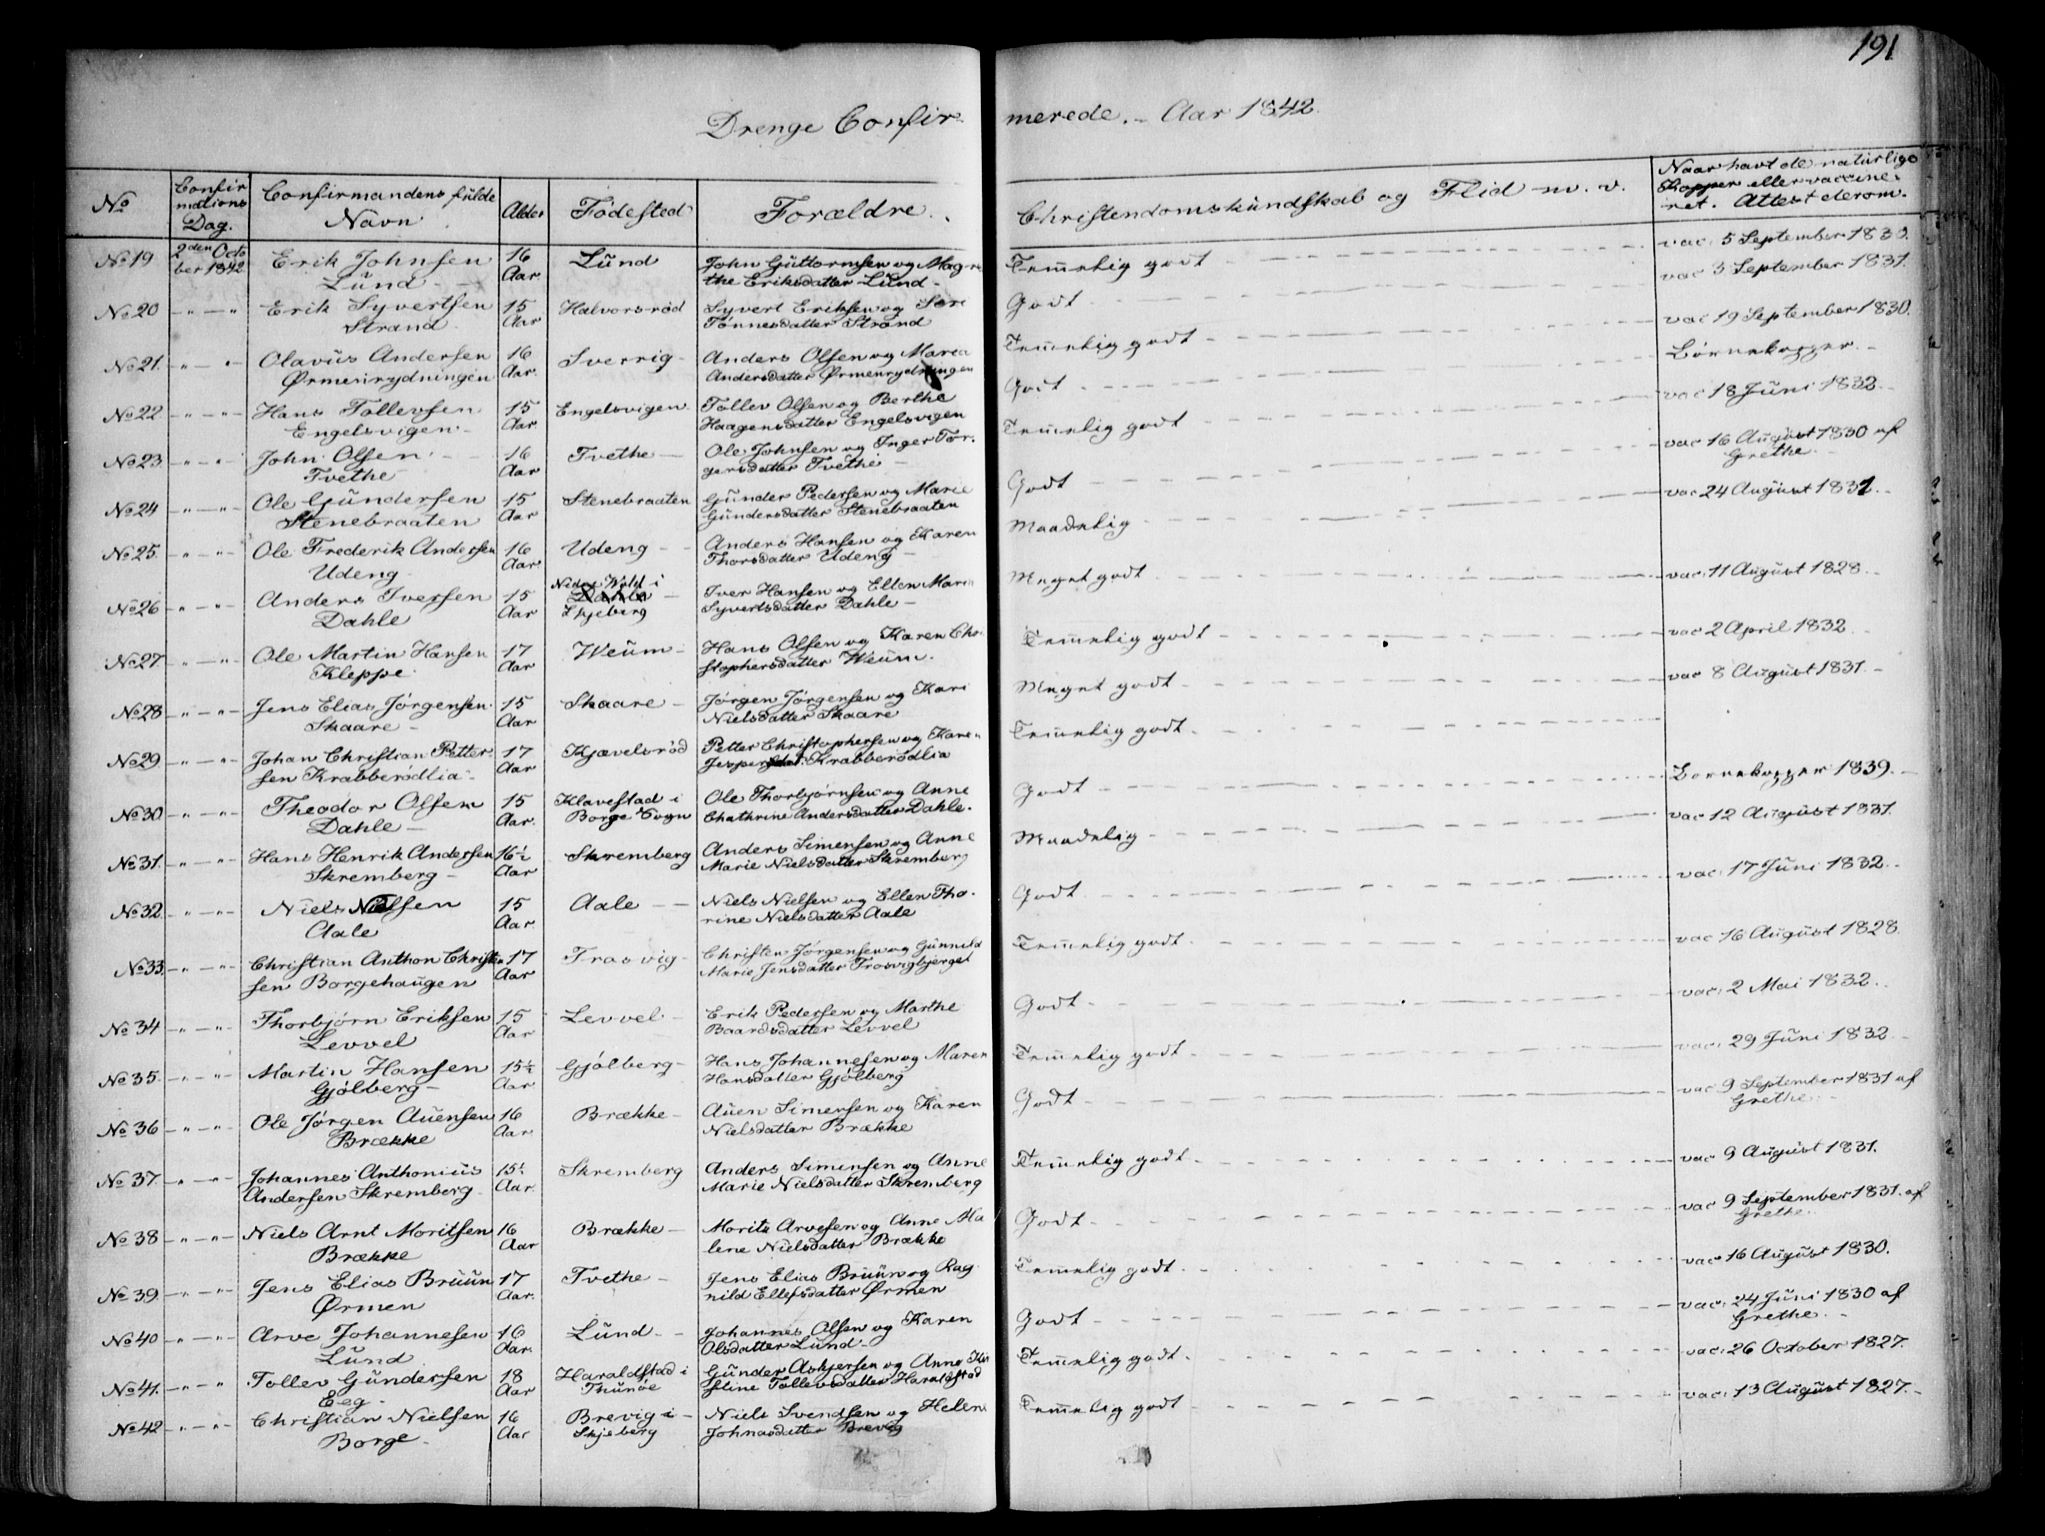 191
Drenge Confirmerede. - Aar 1842.
No | Confirmations Dag. | Confirmandens fulde Navn | Alder | Födested | Forældre. | Christendomskündskab og Flid m. v. | Naar havt de natürlige Kopper eller vaccineret. Attest derom.
No 19 | 2den October 1842 | Erik Johnsen Lünd | 16 Aar | Lünd | John Güttormsen og Magrethe Eriksdatter Lünd | Temmelig godt | vac: 5 September 1830.
No 20 | " — " | Erik Syvertsen Strand | 15 Aar | Halvorsröd | Syvert Eriksen og Sere Tönnesdatter Strand | Godt | vac 3 September 1831.
No 21. | " — " | Olavüs Andersen Ørmenrydningen | 16 Aar. | Sverrig | Anders Olsen og Maria Andersdatter Ørmenrydningen | Temmelig godt | vac 19 September 1830.
No 22 | " — " | Hans Tollevsen Engelsvigen | 15 Aar. | Engelsvigen | Tollev Olsen og Berthe Haagensdatter Engelsvigen | Godt | Börnekopper.
No 23 | " — " | John Olsen Tvethe | 16 Aar | Tvethe | Ole Johnsen og Inger Torgersdatter Tvethe | Temmelig godt | vac 18 Jüni 1832
No 24 | " — " | Ole Gündersen Stenebraaten | 15 Aar | Stenebraaten | Günder Pedersen og Marie Gündersdatter Stenebraaten | Godt | vac 16 Aügüst 1830 af Grethe.
No 25. | " — " | Ole Frederik Andersen Udeng | 16 Aar | Udeng | Anders Hansen og Karen Thorsdatter Udeng | Maadelig | vac 24 Aügüst 1831.
No 26 | " — " | Anders Iversen Dahle | 15 Aar | Nidre Wold i Skjeberg | Iver Hansen og Ellen Marie Syvertsdatter Dahle | Meget godt | vac: 11 Aügüst 1828
No 27 | " — " | Ole Martin Hansen Kleppe | 17 Aar | Weüm | Hans Olsen og Karen Christophersdatter Weüm. | Temmelig godt | vac 2 April 1832
No 28 | " — " | Jens Elias Jörgensen Skaare | 15 Aar | Skaare | Jörgen Jörgensen og Kari Nielsdatter Skaare | Meget godt | vac 8 Aügüst 1831.
No 29 | " — " | Johan Christian Pettersen Krabberödlia | 17 Aar | Kjævelsröd | Petter Christophersen og Karen Jespersdat: Krabberödlia | Temmelig godt
No 30 | " — " | Theodor Olsen Dahle | 15 Aar. | Klavestad i Borge Sogn | Ole Thorbjörnsen og Anne Chathrine Andersdatter Dahle. | Godt | Börnekopper 1839.
No 31. | " — " | Hans Henrik Andersen Skremberg | 16½ Aar | Skremberg | Anders Simensen og Anne Marie Nielsdatter Skremberg | Maadelig | vac 12 Aügüst 1831.
No 32 | " — " | Niels Nielsen Aale | 15 Aar. | Aale | Niels Nielsen og Ellen Thorine Nielsdatter Aale | Godt | vac: 17 Jüni 1832.
No 33. | " — " | Christian Anthon Christensen Borgehaügen | 17 Aar | Trosvig | Christen Jörgensen og Günnild Marie Jensdatter Trosvigbjerget | Temmelig godt. | vac 16 Aügüst 1828.
No 34 | " — " | Thorbjörn Eriksen Levvel | 15 Aar | Levvel | Erik Pedersen og Marthe Baardsdatter Levvel | Godt | vac: 2 Mai 1832.
No 35. | " — " | Martin Hansen Gjölberg | 15½ Aar | Gjölberg | Hans Johannesen og Maren Hansdatter Gjölberg | Temmelig godt | vac: 29 Jüni 1832
No 36 | " — " | Ole Jörgen Aüensen Brække | 16 Aar. | Brække | Aüen Simensen og Karen Nielsdatter Brække | Godt | vac 9 September 1831 af Grethe.
No 37. | " — " | Johannes Anthoniüs Andersen Skremberg | 15½ Aar. | Skremberg | Anders Simensen og Anne Marie Nielsdatter Skremberg | Temmelig godt | vac 9 Aügüst 1831.
No 38 | " — " | Niels Arnt Moritsen Brække | 16 Aar | Brække | Morits Arvesen og Anne Malene Nielsdatter Brække | Godt | vac 9 September 1831. af Grethe.
No 39. | " — " | Jens Elias Brüün Ørmen | 17 Aar. | Tvethe | Jens Elias Brüün og Ragnild Ellefsdatter Ørmen | Temmelig godt. | vac 16 Aügüst 1830.
No 40 | " — " | Arve Johannesen Lünd | 16 Aar. | Lünd | Johannes Olsen og Karen Olsdatter Lünd | Godt | vac: 24 Jüni 1830 af Grethe.
No 41. | " — " | Tollev Gündersen Eeg | 18 Aar | Haraldstad i Thünöe | Günder Asbjersen og Anne Kistine Tollevsdatter Haraldstad | Temmelig godt. | vac: 26 October 1827.
No 42 | " — " | Christian Nielsen Borge | 16 Aar | Brevig i Skjeberg | Niels Svendsen og Helene Johnasdatter Brevig | Temmelig godt | vac: 13 Aügüst 1827.